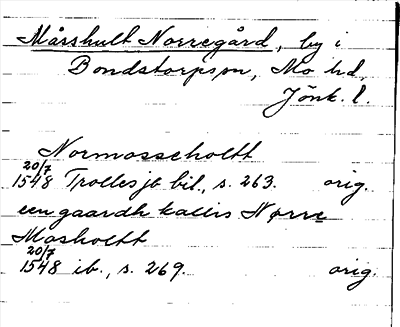 Mässhult Norregård, by i
Bondstorps sn, Mo hd,
Jönk. l.
Normosseholtt
20/7
1548 Trolles jb bil., s. 263. orig.
een gaardh kallis Nørre
Mosholtt
20/7
1548 ib., s. 269. orig.